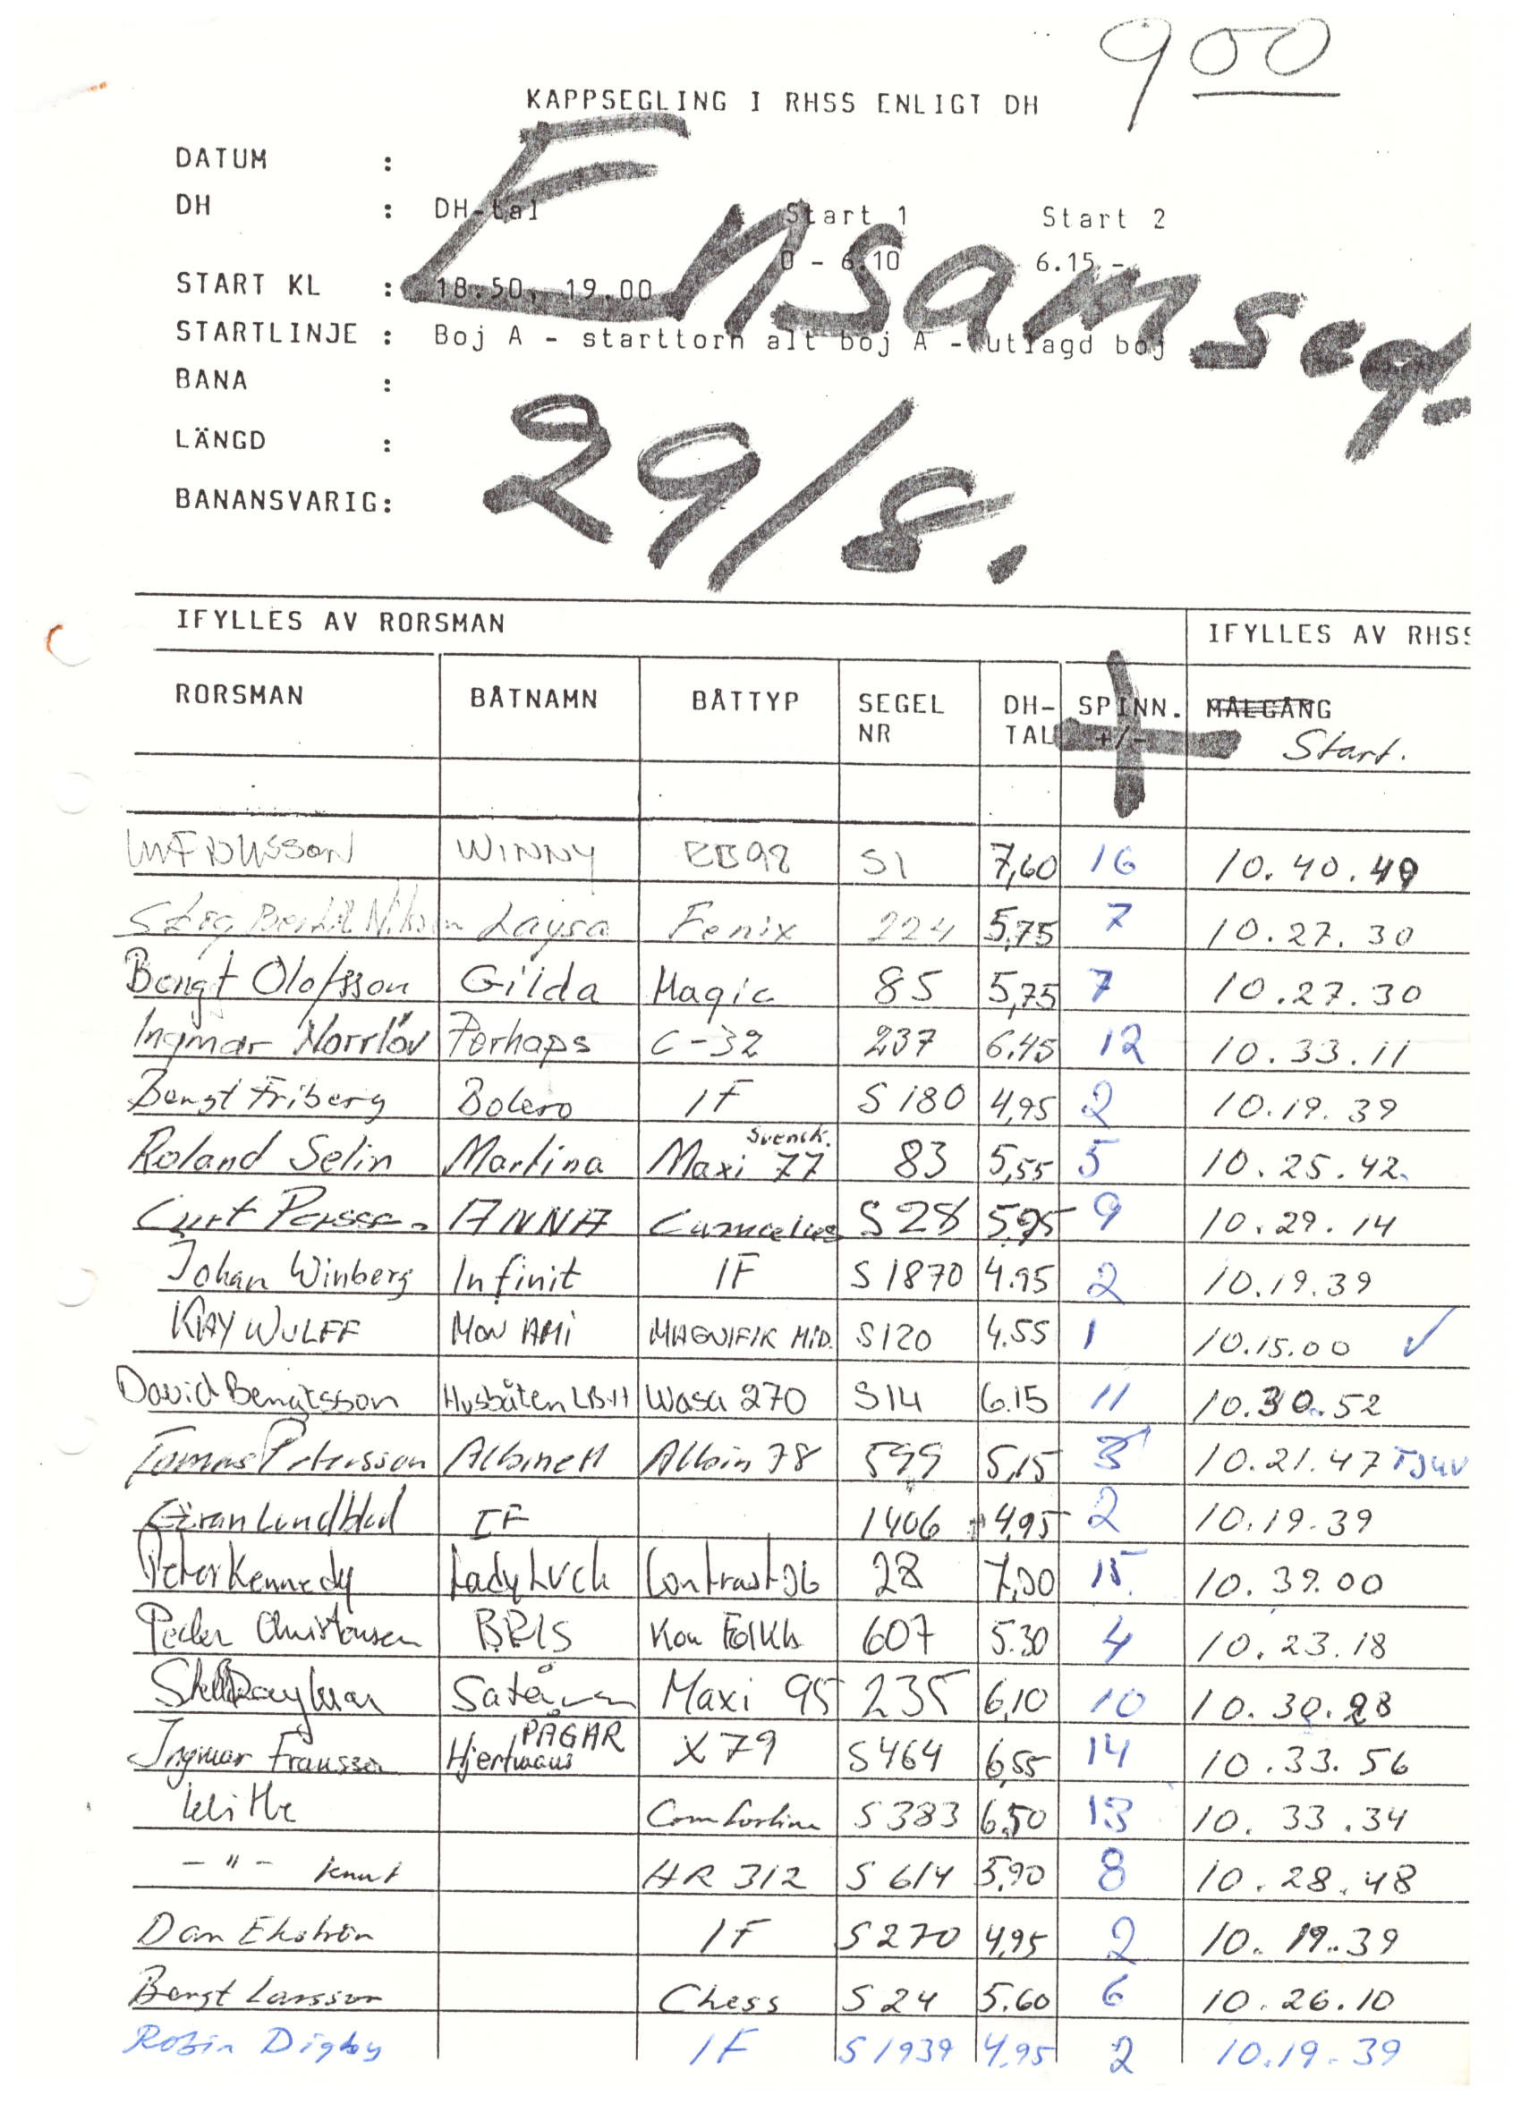 900
KAPPSEGLING I RHSS ENLIGT DH
DATUM :
DH : DH-tal Start 1 Start 2
0 - 6.10 6.15 -
START KL : 18.50, 19.00
Ensamseg-
STARTLINJE : Boj A - starttorn alt boj A - utlagd boj
BANA :
LÄNGD :
29/8.
BANANSVARIG:
IFYLLES AV RORSMAN IFYLLES AV RHSS
RORSMAN BÅTNAMN BÅTTYP SEGEL NR DH-TAL SPINN. +/- MÅLGÅNG
Start.
WINNY 51 7,60 16 10.40.49
Stig Bertil Nilsson Laysa Fenix 224 5,75 7 10.27.30
Bengt Olofsson Gilda Magic 85 5,75 7 10.27.30
Ingmar Norrlöv Perhaps C-32 237 6.45 12 10.33.11
Bengt Friberg Bolero IF S 180 4,95 2 10.19.39
Roland Selin Martina Maxi 77 Svensk. 83 5,55 5 10.25.42
Curt Persson ANNA S 28 5,95 9 10.29.14
Johan Winberg Infinit IF S 1870 4.95 2 10.19.39
KAY WULFF MON AMI MAGNIFIK MID. S120 4.55 1 10.15.00 ✓
David Bengtsson Husbåten Wasa 270 S14 6.15 11 10.30.52
Tomas Petersson Albinett Albin 78 599 5,15 3 10.21.47 TJUV
Göran Lundblad IF 1406 4,95 2 10.19.39
Peter Kennedy Lady Luck Contrast 36 28 7,00 15 10.39.00
Peder Christensen BRIS Kon Folkb 607 5.30 4 10.23.18
Maxi 95 235 6,10 10 10.30.28
Ingmar Fransson Hjertmans PÅGAR X79 S464 6,55 14 10.33.56
Withe Comfortina S 383 6,50 13 10.33.34
- " - Knut HR 312 S 614 5,90 8 10.28.48
Dan Ekström IF S 270 4,95 2 10.19.39
Bengt Larsson Chess S 24 5.60 6 10.26.10
Robin Digby IF S 1939 4.95 2 10.19.39